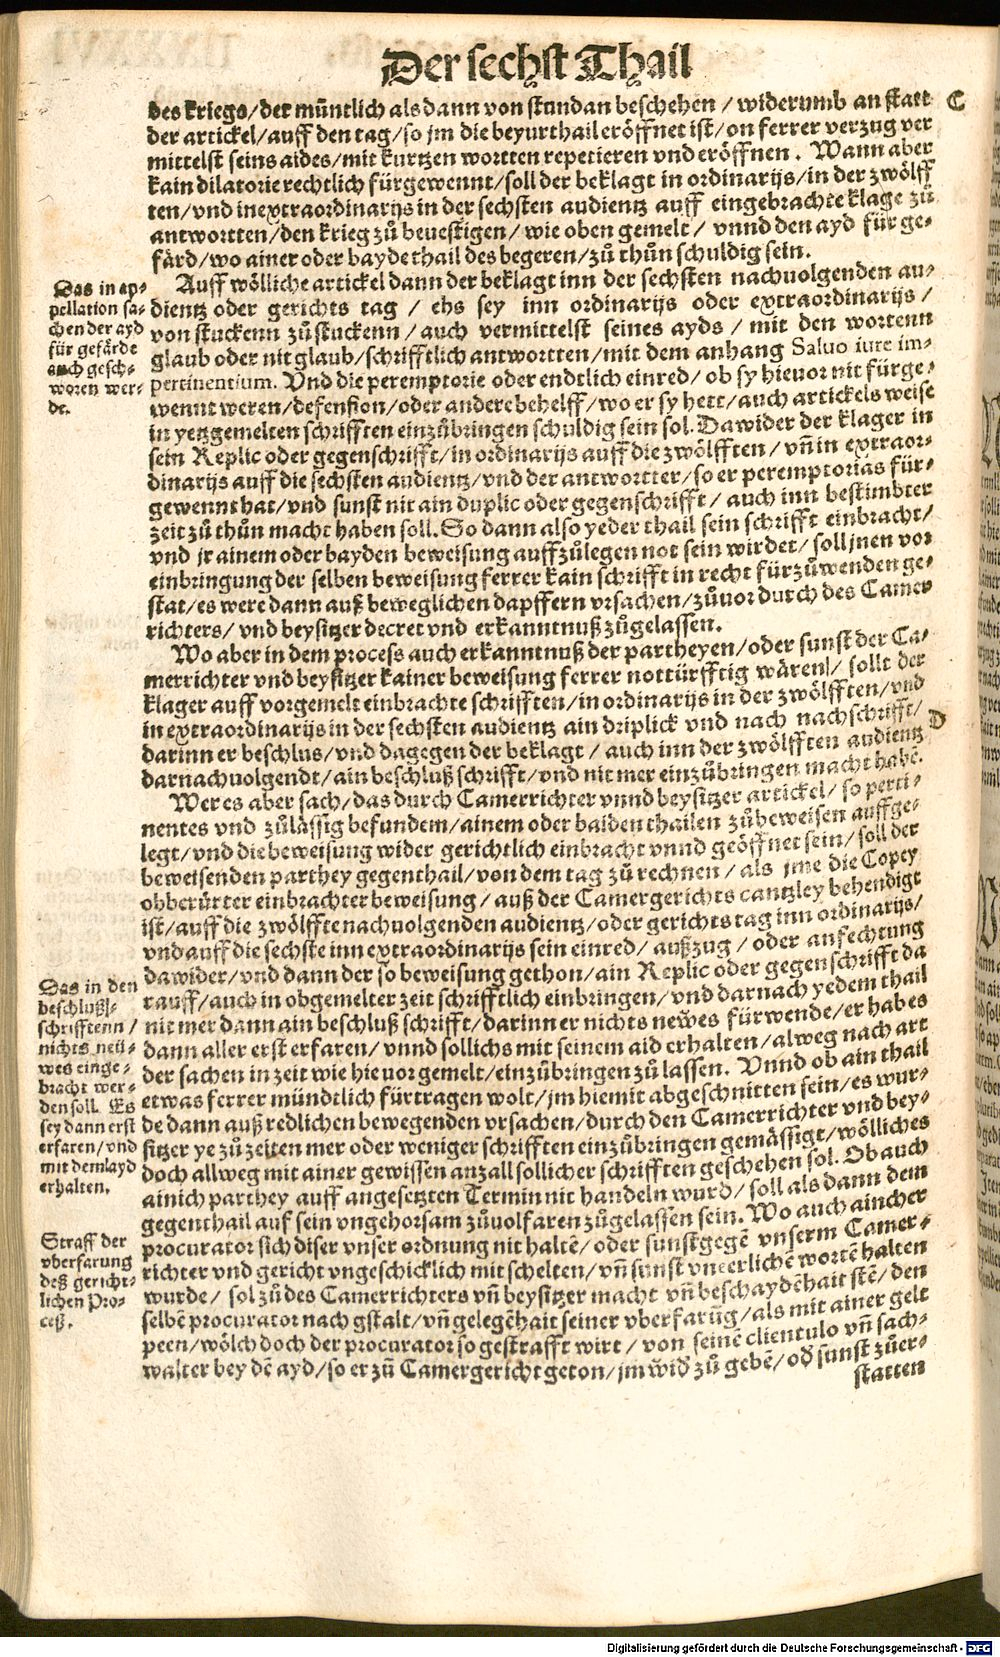 Der sechst Thail
des kriegs/der müntlich als dann von stundan beschehen / widerumb an statt
C
der artickel/auff den tag/so jm die beyurthail eröffnet ist/on ferrer verzug ver
mittelst seins aides/mit kurtzen wortten repetieren vnd eröffnen. Wann aber
kain dilatorie rechtlich fürgewennt/soll der beklagt in ordinarijs/in der zwölff
ten/vnd in extraordinarijs in der sechsten audientz auff eingebrachte klage zů
antwortten/den krieg zů beuestigen/ wie oben gemelt/ vnnd den ayd für ge-
färd/wo ainer oder bayde thail des begeren/zů thůn schuldig sein.
Auff wölliche artickel dann der beklagt inn der sechsten nachuolgenden au-
dientz oder gerichts tag / ehs sey inn ordinarijs oder extraordinarijs /
von stuckenn zů stuckenn / auch vermittelst seines ayds / mit den wortenn
glaub oder nit glaub/schrifftlich antwortten/mit dem anhang Saluo iure im-
pertinentium. Vnd die peremptorie oder endtlich einred/ ob sy hieuor nit fürge-
wennt weren/defension/oder andere behelff/wo er sy hett/auch artickels weise
in yetzgemelten schrifften einzůbringen schuldig sein sol. Dawider der klager in
sein Replic oder gegenschrifft/in ordinarijs auff die zwölfften/ vñ in extraor-
dinarijs auff die sechsten audientz/vnd der antwortter/so er peremptorias für-
gewennt hat/vnd sunst nit ain duplic oder gegenschrifft/ auch inn bestimbter
zeit zů thůn macht haben soll. So dann also yeder thail sein schrifft einbracht/
vnd jr ainem oder bayden beweisung auffzůlegen not sein wirdet/ soll jnen vor
einbringung der selben beweisung ferrer kain schrifft in recht fürzůwenden ge-
stat/es were dann auß beweglichen dapffern vrsachen/zůuor durch des Camer
richters/ vnd beysitzer decret vnd erkanntnuß zůgelassen.
Das in ap-
pellation sa-
chen der ayd
für gefärde
auch gesch-
woren wer-
de.
Wo aber in dem process auch erkanntnuß der partheyen/oder sunst der Ca-
merrichter vnd beysitzer kainer beweisung ferrer nottürfftig wären/ sollt der
klager auff vorgemelt einbrachte schrifften/in ordinarijs in der zwölfften/vnd
in extraordinarijs in der sechsten audientz ain driplick vnd nach nachschrifft/
D
darinn er beschlus/vnd dagegen der beklagt / auch inn der zwölfften audientz
darnachuolgendt/ain beschluß schrifft/vnd nit mer einzůbringen macht habē.
Wer es aber sach/das durch Camerrichter vnnd beysitzer artickel/ so perti-
nentes vnd zůlässig befundem/ainem oder baiden thailen zůbeweisen auffge-
legt/vnd die beweisung wider gerichtlich einbracht vnnd geöffnet sein/soll der
beweisenden parthey gegenthail/von dem tag zů rechnen/ als jme die Copey
obberürter einbrachter beweisung/ auß der Camergerichts cantzley behendigt
ist/auff die zwölffte nachuolgenden audientz/oder gerichts tag inn ordinarijs/
vnd auff die sechste inn extraordinarijs sein einred/ außzug / oder anfechtung
dawider/vnd dann der so beweisung gethon/ain Replic oder gegenschrifft da
rauff/auch in obgemelter zeit schrifftlich einbringen/vnd darnach yedem thail
nit mer dann ain beschluß schrifft/darinn er nichts newes fürwende/er hab es
dann aller erst erfaren/vnnd sollichs mit seinem aid erhalten/alweg nach art
der sachen in zeit wie hieuor gemelt/einzůbringen zů lassen. Vnnd ob ain thail
etwas ferrer mündtlich fürtragen wolt/jm hiemit abgeschnitten sein/es wur-
de dann auß redlichen bewegenden vrsachen/durch den Camerrichter vnd bey-
sitzer ye zů zeiten mer oder weniger schrifften einzůbringen gemässigt/wölliches
doch allweg mit ainer gewissen anzall sollicher schrifften geschehen sol. Ob auch
ainich parthey auff angesetzten Termin nit handeln wurd/ soll als dann dem
gegenthail auf sein vngehorsam zůuolfaren zůgelassen sein. Wo auch aincher
procurator sich diser vnser ordnung nit haltē/oder sunst gegē vnserm Camer-
richter vnd gericht vngeschicklich mit schelten/vñ sunst vneerlichē wortē halten
wurde/ sol zů des Camerrichters vñ beysitzer macht vñ beschaydēhait stē/den
selbē procurator nach gstalt/vñ gelegēhait seiner vberfarūg/als mit ainer gelt
peen/wölch doch der procurator so gestrafft wirt / von seinē clientulo vñ sach-
walter bey dē ayd/so er zů Camergericht geton/jm wid zů gebē/od sunst zůer-
statten
Das in den
beschluß-
schrifftenn /
nichts neü-
wes einge-
bracht wer-
den soll. Es
sey dann erst
erfaren/vnd
mit dem ayd
erhalten.
Straff der
vberfarung
deß gericht-
lichen Pro-
ceß.
Digitalisierung gefördert durch die Deutsche Forschungsgemeinschaft - DFG